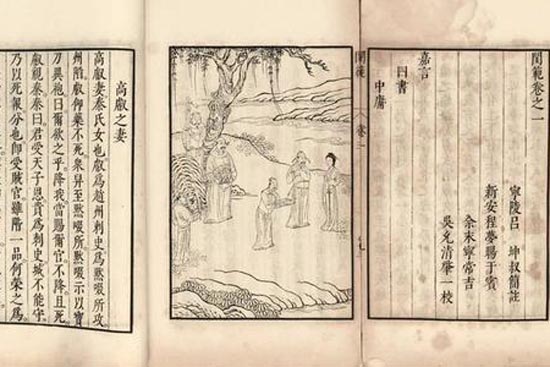 閨範卷之一
寧陵呂 坤叔簡註
新安程夢暘于賓
余末寧常吉
吳允清肇一校
嘉言
四書
中庸
閨範
卷
高叡之妻
高叡妻秦氏女也叡爲趙州刺史爲黙啜所攻
州陷叡仰藥不死衆舁至黙啜所黙啜示以寶
刀異袍曰爾欲之乎降我當賜爾官不降且死
叡視秦秦曰君受天子恩貴爲刺史城不能守
乃以死報分也卽受賊官雖階一品何榮之爲